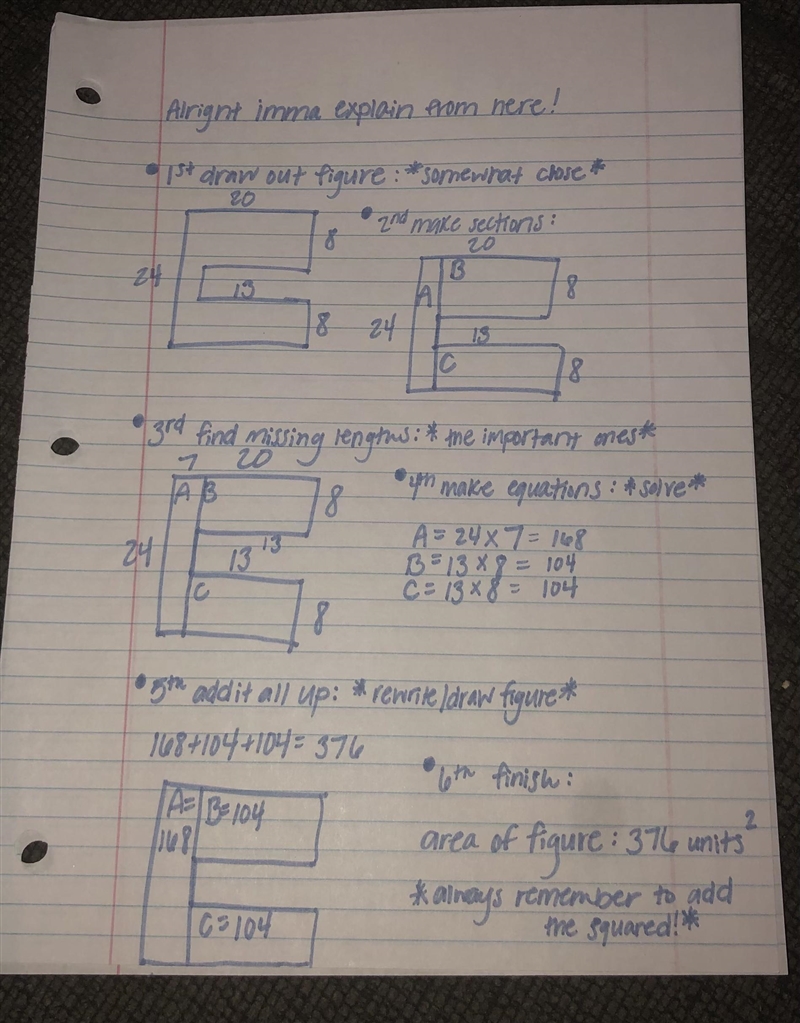 Alright imma explain from here!
• 1st draw out figure: *somewhat close*
20
8
24
13
8
• 2nd make sections:
20
B
A
8
24
13
C
8
• 3rd find missing lengths: *the important ones*
7 20
A B
8
24
13 13
C
8
• 4th make equations: *solve*
A = 24 x 7 = 168
B = 13 x 8 = 104
C = 13 x 8 = 104
• 5th add it all up: *rewrite/draw figure*
168+104+104= 376
A=
168
B=104
C=104
• 6th finish:
area of figure: 376 units²
*always remember to add
the squared!*